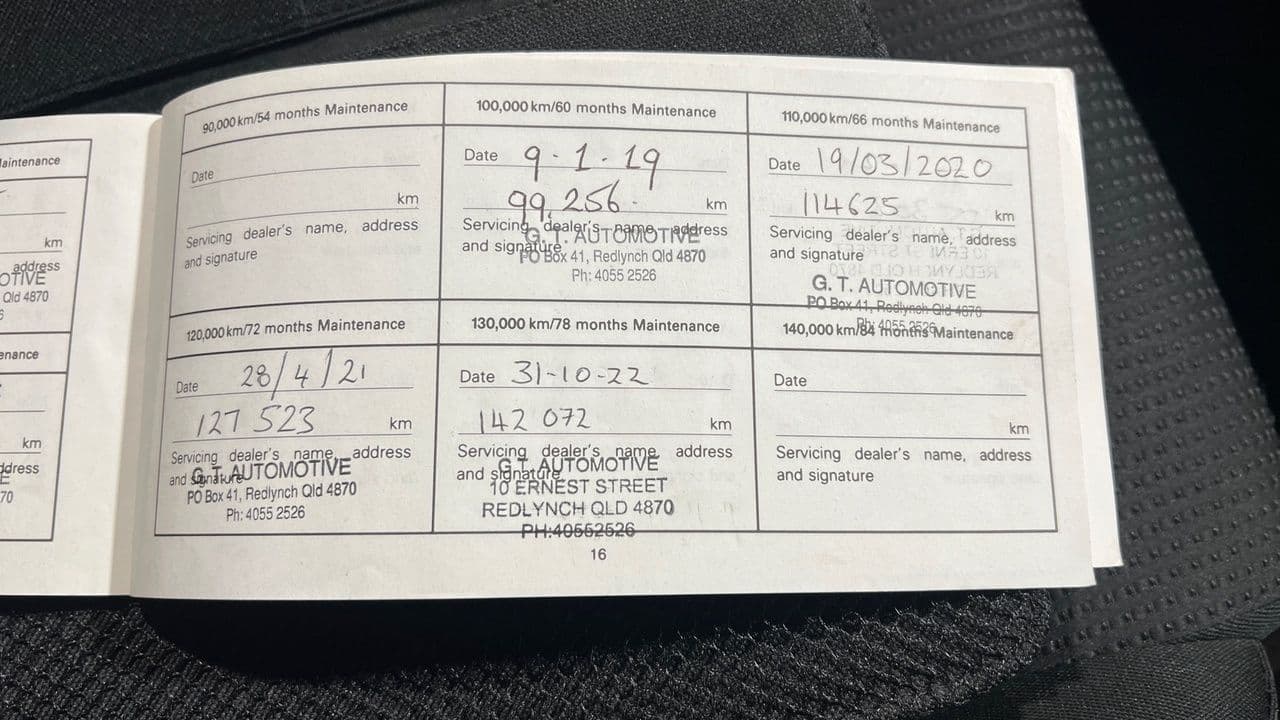 laintenance
km
address
OTIVE
Qld 4870
enance
km
ddress
70
90,000 km/54 months Maintenance
Date
km
Servicing dealer's name, address
and signature
100,000 km/60 months Maintenance
Date 9-1-19
99,256- km
Servicing dealer's name, address
and signature
G. T. AUTOMOTIVE
PO Box 41, Redlynch Qld 4870
Ph: 4055 2526
110,000 km/66 months Maintenance
Date 19/03/2020
114625 km
Servicing dealer's name, address
and signature
G. T. AUTOMOTIVE
PO Box 41, Redlynch Qld 4870
Ph: 4055 2526
120,000 km/72 months Maintenance
Date 28/4/21
127 523 km
Servicing dealer's name, address
and signature
G. T. AUTOMOTIVE
PO Box 41, Redlynch Qld 4870
Ph: 4055 2526
130,000 km/78 months Maintenance
Date 31-10-22
142 072 km
Servicing dealer's name, address
and signature
G.T. AUTOMOTIVE
10 ERNEST STREET
REDLYNCH QLD 4870
PH:40552526
140,000 km/84 months Maintenance
Date
km
Servicing dealer's name, address
and signature
16